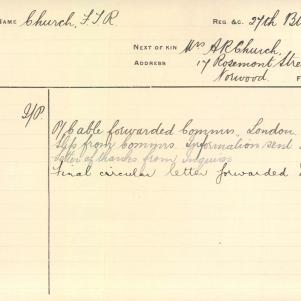 NAME Church, F.J.R. REG &C. 27th B
NEXT OF KIN Mrs A R Church,
ADDRESS 17 Rosemont Stre
Norwood.
Cable forwarded Commrs. London
from Commrs. Information sent
Letter of thanks from Inquirer
Final circular letter forwarded